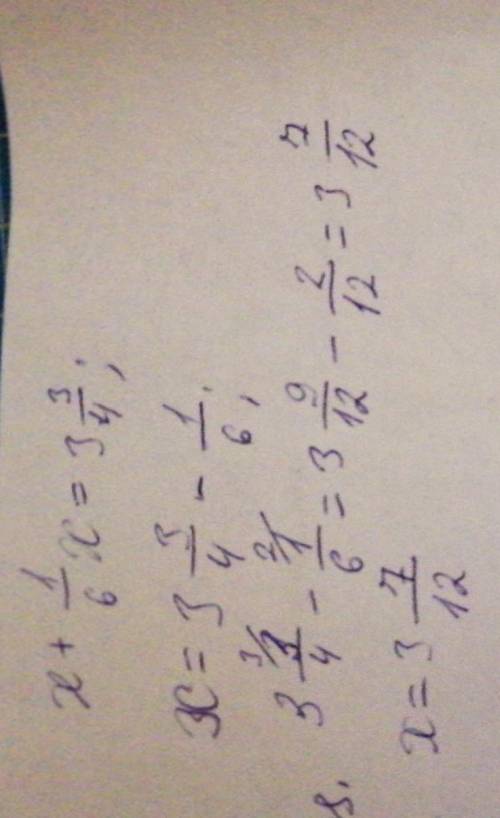 x + 1/6 x = 3 3/4 ;
x = 3 3/4 - 1/6 ;
3 3/4 - 1/6 = 3 9/12 - 2/12 = 3 7/12
x = 3 7/12